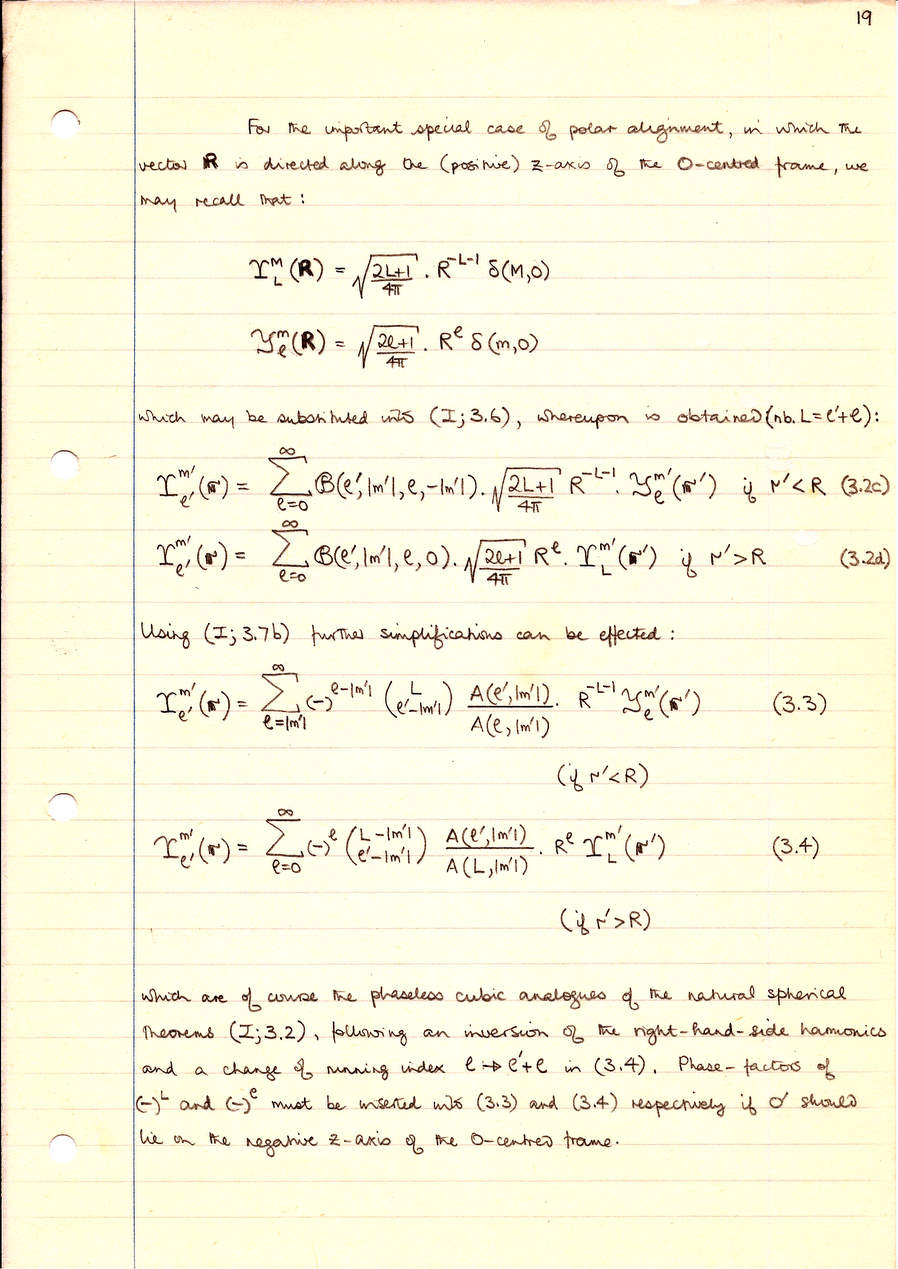 19
For the important special case of polar alignment, in which the
vector R is directed along the (positive) z-axis of the O-centred frame, we
may recall that :
ϒ_L^M(R) = √(2L+1 / 4π) . R^{-L-1} δ(M,0)
𝒴_ℓ^m(R) = √(2ℓ+1 / 4π) . R^ℓ δ(m,0)
which may be substituted into (I; 3.6), whereupon is obtained (nb. L=ℓ'+ℓ):
ϒ_{ℓ'}^{m'}(r) = ∑_{ℓ=0}^{∞} ℬ(ℓ',|m'|,ℓ,-|m'|). √(2L+1 / 4π) R^{-L-1}. 𝒴_ℓ^{m'}(r') if r'<R (3.2c)
ϒ_{ℓ'}^{m'}(r) = ∑_{ℓ=0}^{∞} ℬ(ℓ',|m'|,ℓ,0). √(2ℓ+1 / 4π) R^ℓ. ϒ_L^{m'}(r') if r'>R (3.2d)
Using (I; 3.7b) further simplifications can be effected :
ϒ_{ℓ'}^{m'}(r) = ∑_{ℓ=|m'|}^{∞} (-)^{ℓ-|m'|} (L / ℓ'-|m'|) A(ℓ',|m'|) / A(ℓ,|m'|) . R^{-L-1} 𝒴_ℓ^{m'}(r') (3.3)
(if r'<R)
ϒ_{ℓ'}^{m'}(r) = ∑_{ℓ=0}^{∞} (-)^ℓ (L-|m'| / ℓ'-|m'|) A(ℓ',|m'|) / A(L,|m'|) . R^ℓ ϒ_L^{m'}(r') (3.4)
(if r'>R)
which are of course the phaseless cubic analogues of the natural spherical
theorems (I; 3.2), following an inversion of the right-hand-side harmonics
and a change of running index ℓ → ℓ'+ℓ in (3.4). Phase-factors of
(-)^L and (-)^ℓ must be inserted into (3.3) and (3.4) respectively if O' should
lie on the negative z-axis of the O-centred frame.